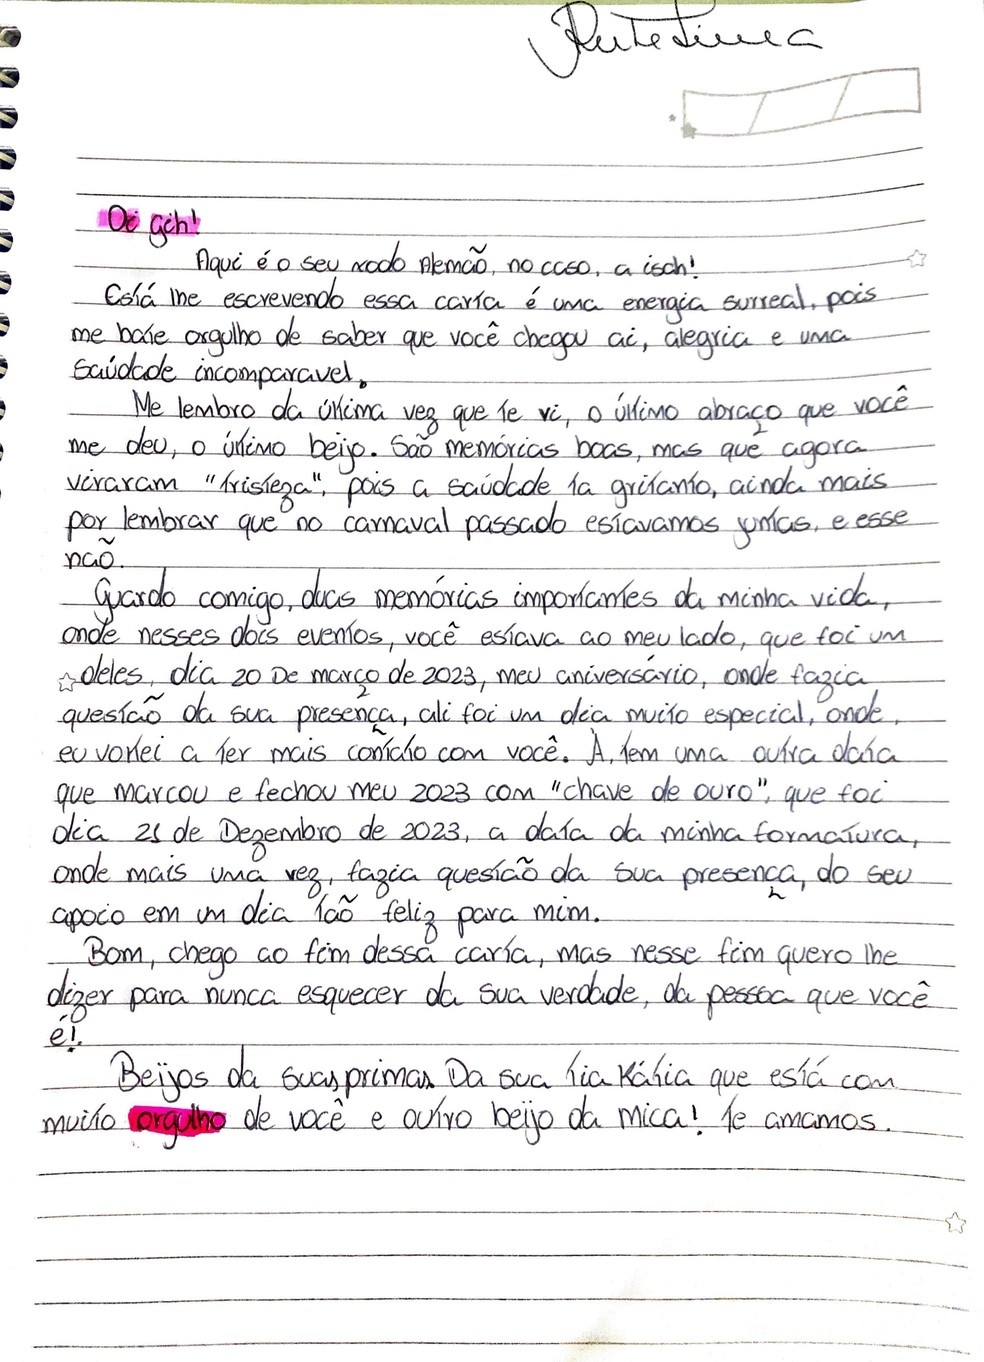 Rute Lima
Oi geh!
Aqui é o seu xodo Alemão, no caso, a isch!
Está lhe escrevendo essa carta é uma energia surreal, pois
me bate orgulho de saber que você chegou ai, alegria e uma
saúdade incomparavel.
Me lembro da última vez que te vi, o último abraço que você
me deu, o último beijo. São memórias boas, mas que agora
viraram "tristeza", pois a saúdade ta gritanto, ainda mais
por lembrar que no carnaval passado estavamos juntas, e esse
não.
Guardo comigo, duas memórias importantes da minha vida,
onde nesses dois eventos, você estava ao meu lado, que foi um
deles, dia 20 De março de 2023, meu aniversário, onde fazia
questão da sua presença, ali foi um dia muito especial, onde,
eu voltei a ter mais contato com você. À, tem uma outra data
que marcou e fechou meu 2023 com "chave de ouro", que foi
dia 21 de Dezembro de 2023, a data da minha formatura,
onde mais uma vez, fazia questão da sua presença, do seu
apoio em um dia tão feliz para mim.
Bom, chego ao fim dessa carta, mas nesse fim quero lhe
dizer para nunca esquecer da sua verdade, da pessoa que você
é!.
Beijos da suas primas. Da sua tia Kátia que está com
muito orgulho de você e outro beijo da mica! Te amamos.